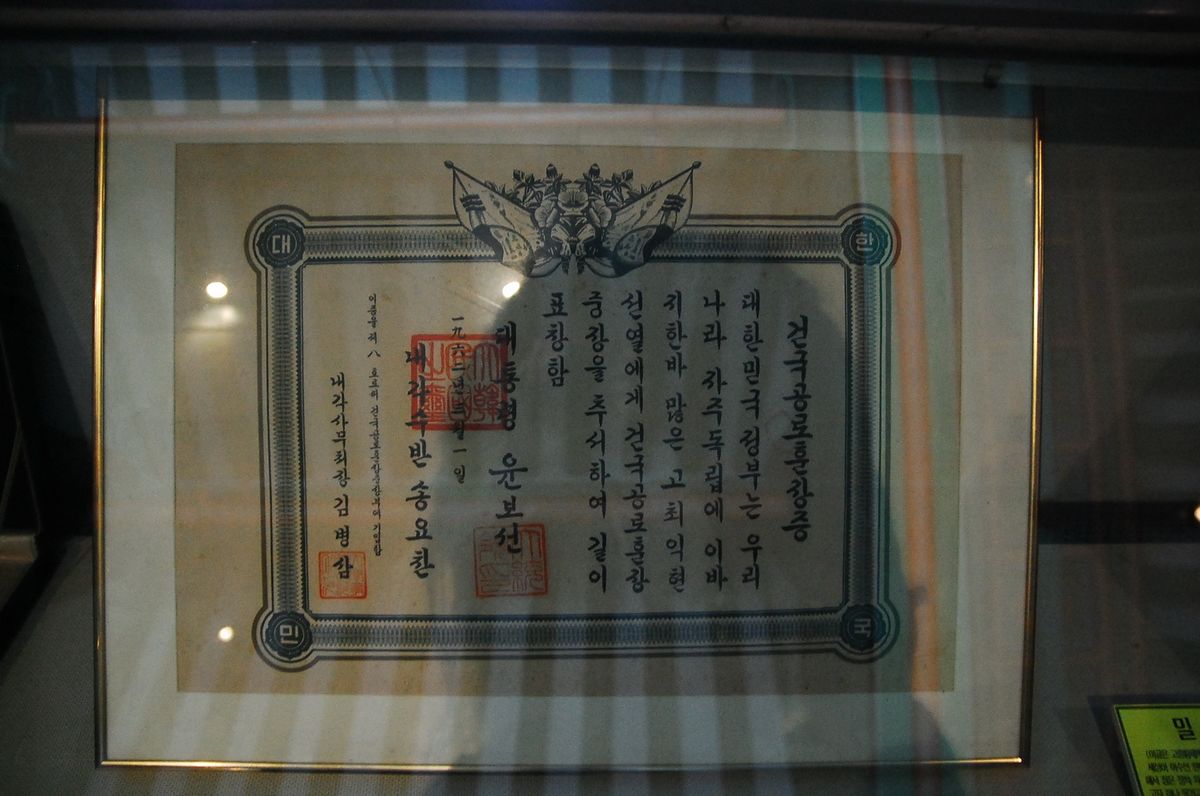 대
한
민
국
건국공로훈장증
대한민국 정부는 우리
나라 자주독립에 이바
지한바 많은 고 최익현
선열에게 건국공로훈장
중장을 추서하여 길이
표창함
대통령 윤보선
一九六二년三월一일
내각수반 송요찬
이증을 제八호로써 기입함
내각사무처장 김병삼
밀